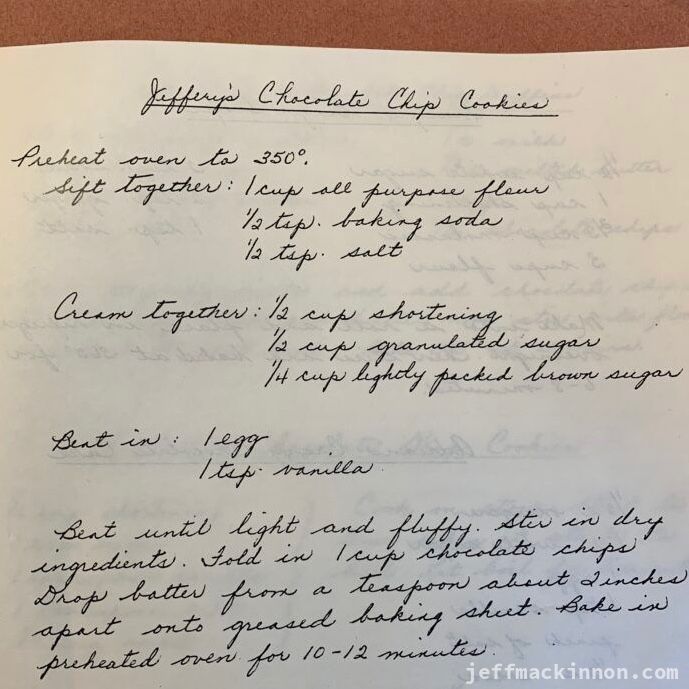 Jeffery's Chocolate Chip Cookies
Preheat oven to 350°.
Sift together: 1 cup all purpose flour
1/2 tsp. baking soda
1/2 tsp. salt
Cream together: 1/2 cup shortening
1/2 cup granulated sugar
1/4 cup lightly packed brown sugar
Beat in: 1 egg
1 tsp. vanilla
Beat until light and fluffy. Stir in dry
ingredients. Fold in 1 cup chocolate chips
Drop batter from a teaspoon about 2 inches
apart onto greased baking sheet. Bake in
preheated oven for 10-12 minutes.
jeffmackinnon.com